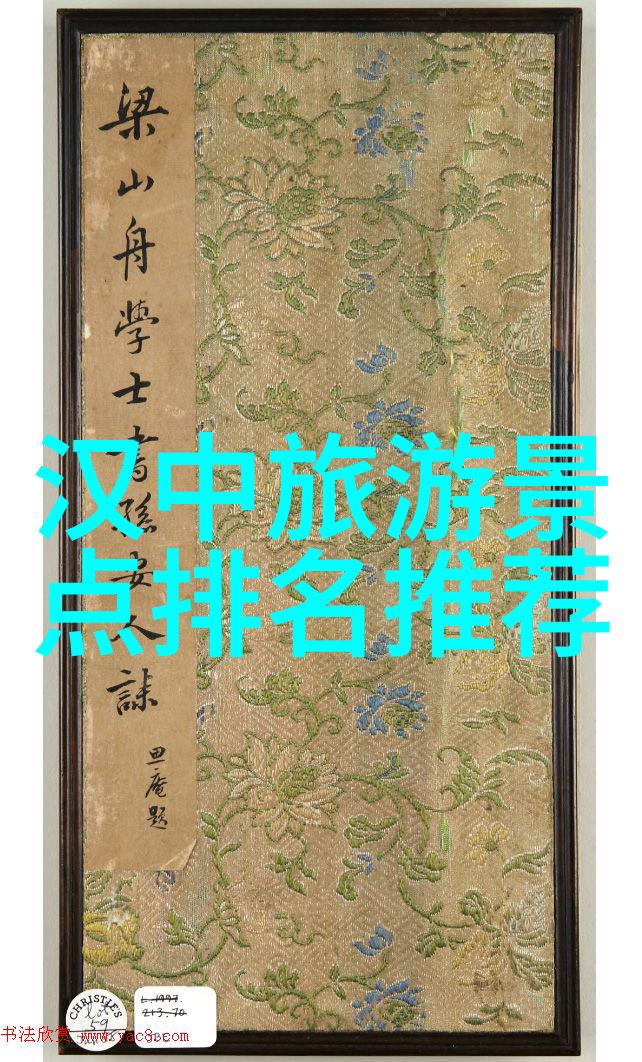 梁山舟學士書孫安人誄
庵題
汉中旅游景
点排名推荐
CHRISTIE'S
lot
59
L.1997.
213.70
书法欣赏 www.yac8.com